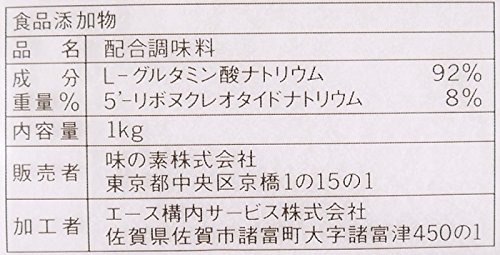 食品添加物
品名 配合調味料
成分 L-グルタミン酸ナトリウム 92%
重量% 5'-リボヌクレオタイドナトリウム 8%
内容量 1kg
販売者 味の素株式会社
東京都中央区京橋1の15の1
加工者 エース構内サービス株式会社
佐賀県佐賀市諸富町大字諸富津450の1